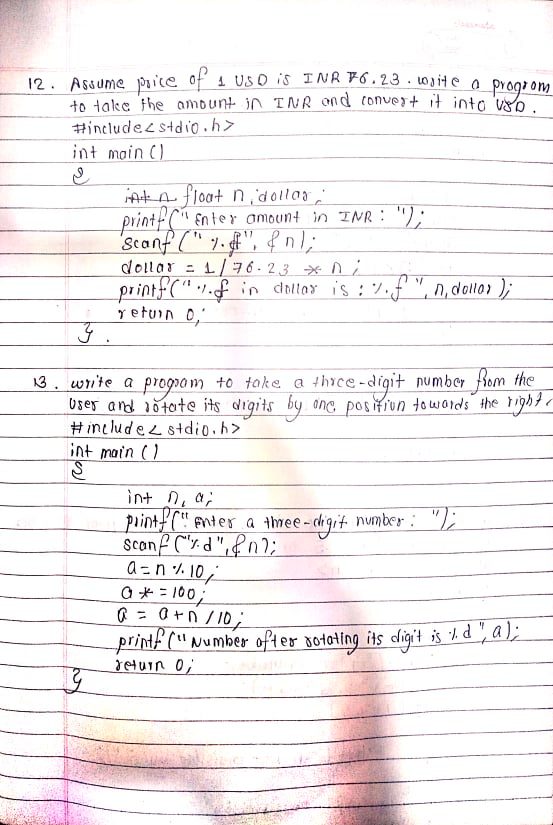 12. Assume price of 1 USD is INR 76.23. write a program
to take the amount in INR and convert it into USD.
#include<stdio.h>
int main()
{
int n float n, dollar;
printf("Enter amount in INR: ");
scanf("%f", &n);
dollar = 1/76.23 * n;
printf("%f in dollar is : %f", n, dollar);
return 0;
}.
13. write a program to take a three-digit number from the
user and rotate its digits by one position towards the right.
#include<stdio.h>
int main()
{
int n, a;
printf("Enter a three-digit number: ");
scanf("%d", &n);
a=n%10;
a*=100;
a = a+n/10;
printf("Number after rotating its digit is %d", a);
return 0;
}